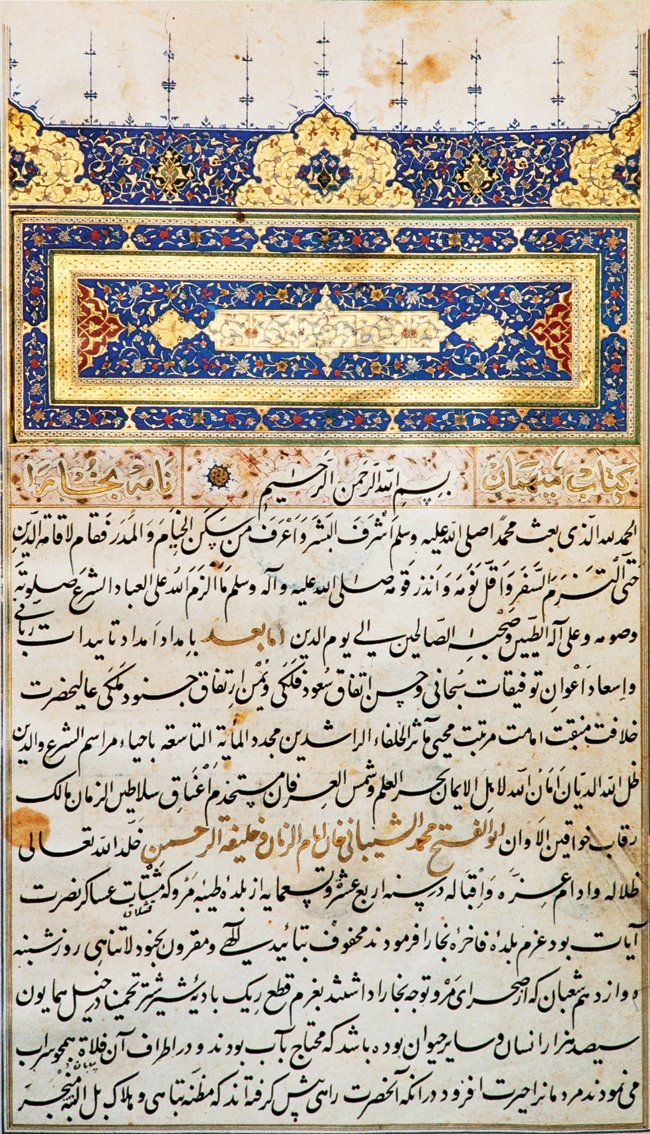 کتاب میهمان
نامه بخارا
بسم الله الرحمن الرحیم
الحمد لله الذی بعث محمدا صلی الله علیه وسلم اشرف البشر و اعرف من سکن الخیام والمدر فقام لاقامة الدین
حتی التزم السفر و اقل نومه و انذر قومه صلی الله علیه و آله وسلم ما الزم الله علی العباد الشرع صلوته
وصومه وعلی آله الطیبین وصحبه الصالحین الی یوم الدین اما بعد بامداد امداد تاییدات ربانی
و اسعاد اعوان توفیقات سبحانی وحسن اتفاق سعود فلکی ویمن ارتفاق جنود ملکی عالیحضرت
خلافت منقبت امامت مرتبت محیی مآثر الخلفاء الراشدین مجدد المأیة التاسعة باحیاء مراسم الشرع والدین
ظل الله الدیان امان الله لاهل الایمان بحر العلم وشمس العرفان مستخدم اعناق سلاطین الزمان مالک
رقاب خواقین الاوان ابو الفتح محمد الشیبانی خان امام الزمان و خلیفة الرحمن خلد الله تعالی
ظلاله وادام عزه و اقباله در سنه اربع عشر و تسعمایه از بلده طیبه مرو که مشتات عساکر نصرت
قشلاق
آیات بود عزم بلدهٔ فاخرهٔ بخارا فرمودند محفوف بتائید الهی و مقرون بجنود لاتناهی روز شنبه
دوازدهم شعبان که از صحرای مرو توجه بخارا داشتند بعزم قطع ریک بادیهٔ شیر شتر تخمینا در خیل همایون
سیصد هزار انسان و سایر حیوان بوده باشد که محتاج بآب بودند و در اطراف آن فلاة همچو سراب
می نمودند مردمانرا حیرت افزود در انکه آنحضرت راهی پیش کرفته اند که مظنه تباهی و هلاک بل البته منجر